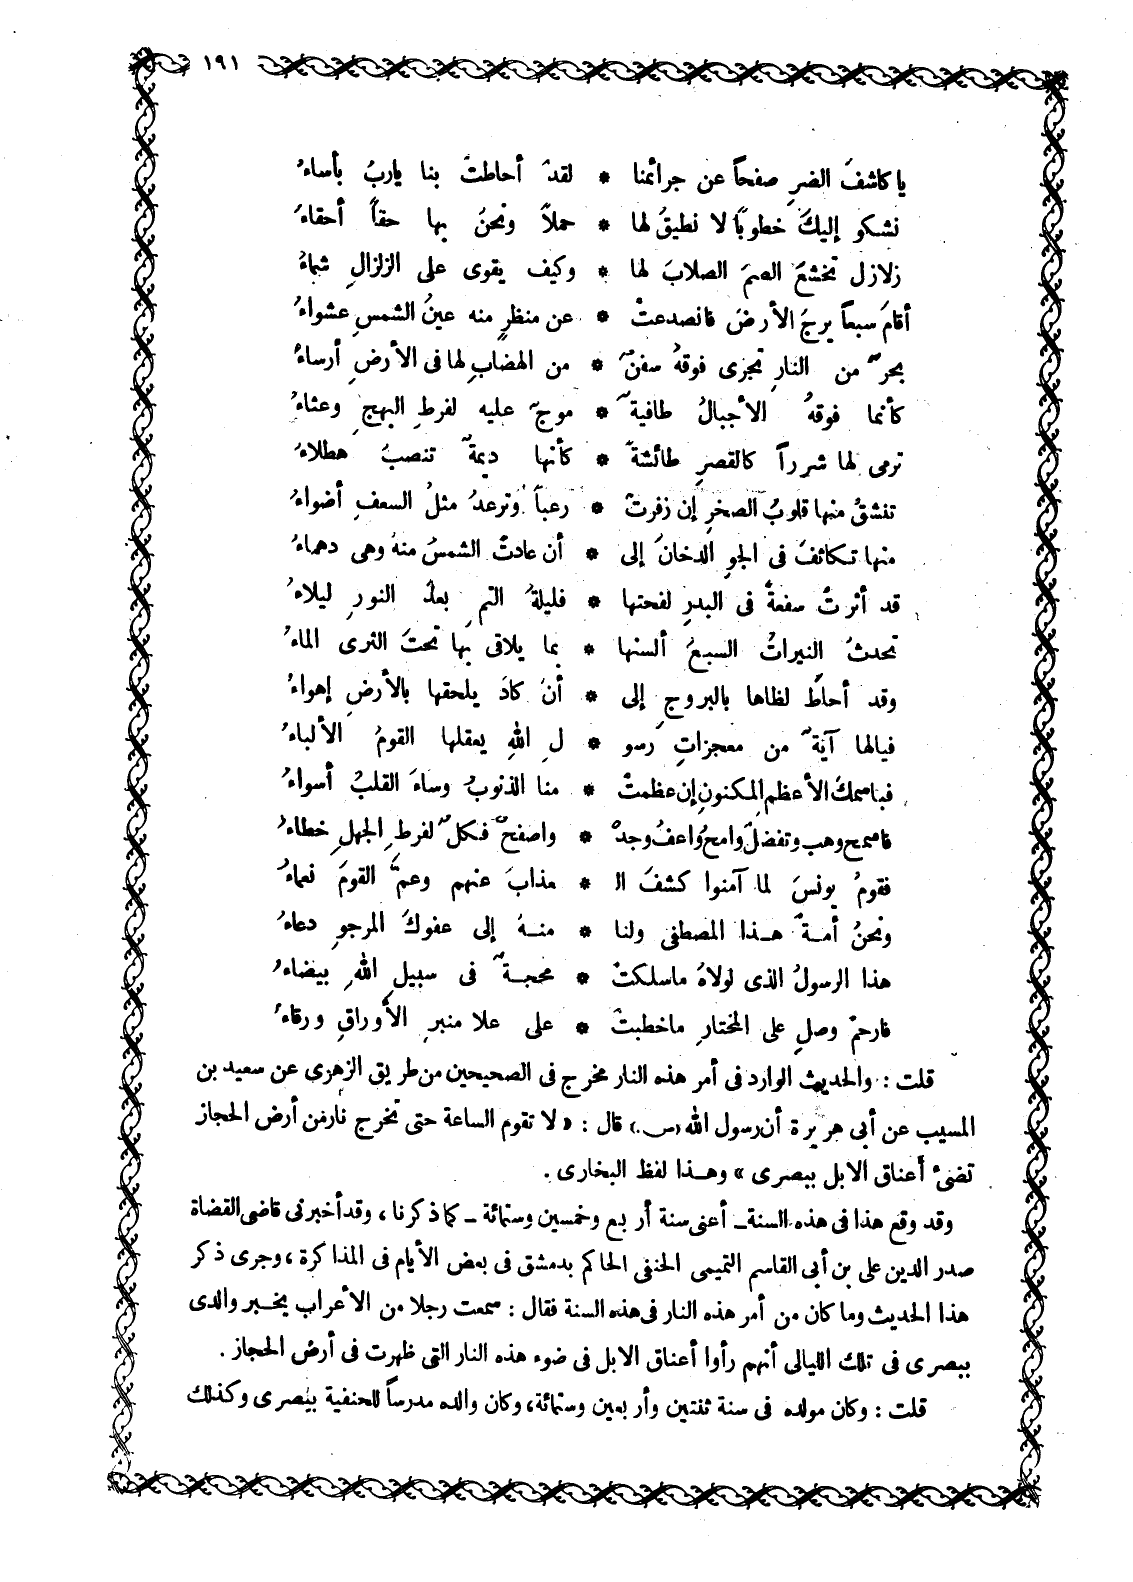 ١٩١
يا كاشفَ الضرِ صفحاً عن جرائمنا * لقدْ أحاطتْ بنا ياربُ بأساءُ
نشكو إليكَ خطوباً لا نطيقُ لها * حملاً ونحنُ بها حقاً أحقاءَ
زلازل تخشعَ الصمَ الصلابَ لها * وكيف يقوى على الزلزالِ شماءُ
أقامَ سبعاً يرجَ الأرضَ فانصدعتْ * عن منظرٍ منه عينُ الشمسِ عشواءُ
بحرٌ من النارِ تجرى فوقهُ سفنٌ * من الهضابِ لها فى الأرضِ أرساءُ
كأنما فوقهُ الأجبالُ طافيةٌ * موجٌ عليه لفرطِ البهجِ وعثاءُ
ترمى لها شرراً كالقصرِ طائشةً * كأنها ديمةٌ تنصبُ هطلاءُ
تنشقُ منها قلوبُ الصخرِ إن زفرتْ * رعباً وترعدُ مثلُ السعفِ أضواءُ
منها تكاثفَ فى الجوِ الدخانَ إلى * أن عادتْ الشمسُ منهُ وهى دهماءُ
قد أثرتْ سفعةً فى البدرِ لفحتها * فليلةُ التمِ بعدُ النورِ ليلاءُ
تحدثُ النيراتُ السبعُ ألسنها * بما يلاقى بها تحتَ الثرى الماءُ
وقد أحاطَ لظاها بالبروجِ إلى * أن كادَ يلحقها بالأرضِ إهواءُ
فيالها آيةٌ من معجزاتِ رسو * لِ اللهِ يعقلها القومُ الألباءُ
فباسمكَ الأعظمِ المكنونِ إن عظمتْ * منا الذنوبُ وساءَ القلبُ أسواءُ
فاسمح وهب وتفضلْ وامحُ واعفُ وجدْ * واصفحْ فكلٌ لفرطِ الجهلِ خطاءُ
فقومُ يونسَ لما آمنوا كشفَ ال * عذابَ عنهم وعمَّ القومَ نعماءُ
ونحنُ أمةٌ هذا المصطفى ولنا * منهُ إلى عفوكَ المرجوِ دعاءُ
هذا الرسولُ الذى لولاهُ ماسلكتْ * محجةٌ فى سبيلِ اللهِ بيضاءُ
فارحمْ وصلِ على المختارِ ماخطبتْ * على علا منبرِ الأوراقِ ورقاءُ
قلت : والحديث الوارد فى أمر هذه النار مخرج فى الصحيحين من طريق الزهرى عن سعيد بن
المسيب عن أبى هريرة أن رسول الله (س.) قال : « لا تقوم الساعة حتى تخرج نارمن أرض الحجاز
تضئ أعناق الابل ببصرى » وهذا لفظ البخارى .
وقد وقع هذا فى هذه السنة ـ أعنى سنة أربع وخمسين وستمائة ـ كما ذكرنا ، وقد أخبرنى قاضى القضاة
صدر الدين على بن أبى القاسم التميمى الحنفى الحاكم بدمشق فى بعض الأيام فى المذاكرة ، وجرى ذكر
هذا الحديث وما كان من أمر هذه النار فى هذه السنة فقال : سمعت رجلا من الأعراب يخبر والدى
ببصرى فى تلك الليالى أنهم رأوا أعناق الابل فى ضوء هذه النار التى ظهرت فى أرض الحجاز .
قلت : وكان مولده فى سنة ثنتين وأربعين وستمائة، وكان والده مدرساً للحنفية ببصرى وكذلك